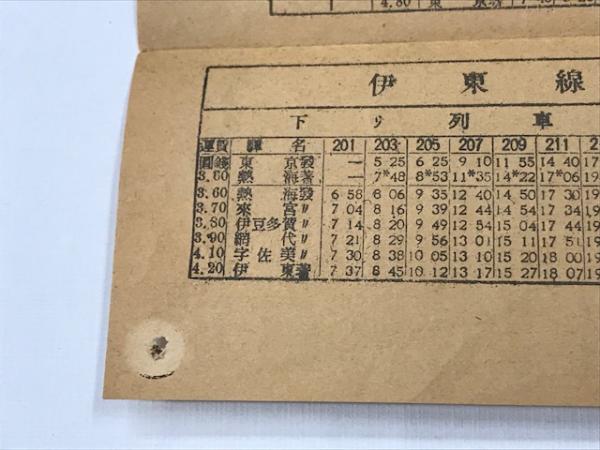 4.80 東 京
伊東線
下リ列車
運賃 驛名 201 203 205 207 209 211 2
圓錢 東京發 — 5 25 6 25 9 10 11 55 14 40 17
3.60 熱海著 — 7*48 8*53 11*35 14*22 17*06 19
3.60 熱海發 6 58 8 06 9 35 12 40 14 50 17 30 19
3.70 來宮〃 7 04 8 16 9 39 12 44 14 54 17 34 19
3.80 伊豆多賀〃 7 14 8 20 9 49 12 54 15 04 17 44 19
3.90 網代〃 7 21 8 29 9 56 13 01 15 11 17 51 19
4.10 宇佐美〃 7 30 8 38 10 05 13 10 15 20 18 00 19
4.20 伊東著 7 37 8 45 10 12 13 17 15 27 18 07 19